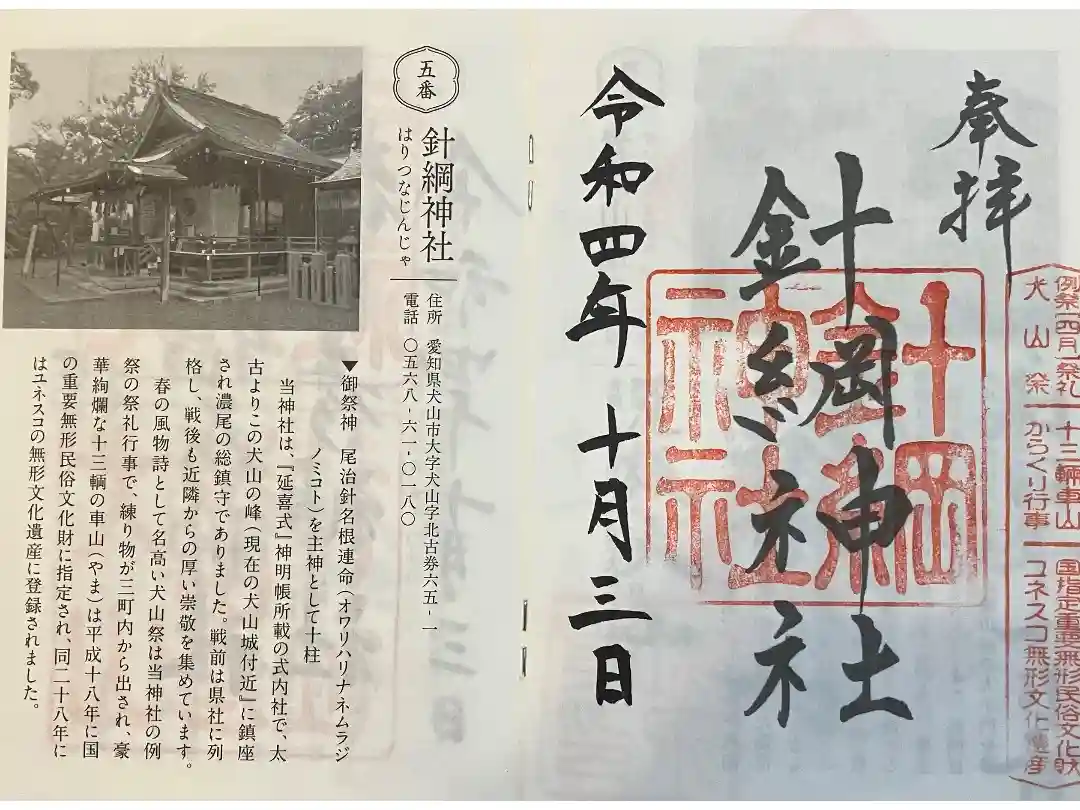 奉拝
針綱神社
令和四年十月三日
針綱神社
例祭(四月)祭礼 十三輌車山 国指定重要無形民俗文化財
犬山祭 からくり行事 ユネスコ無形文化遺産
五番
針綱神社
はりつなじんじゃ
住所 愛知県犬山市大字犬山字北古券六五-一
電話 〇五六八-六一-〇一八〇
▼御祭神 尾治針名根連命(オワリハリナネムラジ
ノミコト)を主神として十柱
当神社は、『延喜式』神明帳所載の式内社で、太
古よりこの犬山の峰(現在の犬山城付近』に鎮座
され濃尾の総鎮守でありました。戦前は県社に列
格し、戦後も近隣からの厚い崇敬を集めています。
春の風物詩として名高い犬山祭は当神社の例
祭の祭礼行事で、練り物が三町内から出され、豪
華絢爛な十三輌の車山(やま)は平成十八年に国
の重要無形民俗文化財に指定され、同二十八年に
はユネスコの無形文化遺産に登録されました。